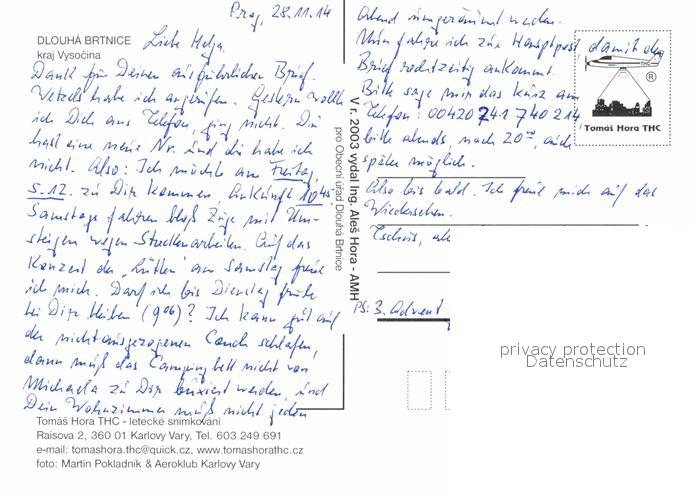 Prag, 28.11.14
DLOUHÁ BRTNICE
kraj Vysočina
Liebe Helga,
Dank für Deinen ausführlichen Brief.
habe ich angerufen. Gestern wollte
ich Dich aus Telefon, ging nicht. Du
hast eine neue Nr. und die habe ich
nicht. Also: Ich möchte am Freitag,
5.12. zu Dir kommen Ankunft 10 45.
Samstags fahren bloß Züge mit Um-
steigen wegen Streckenarbeiten. Auf das
Konzert der „ " am Samstag freue
ich mich. Darf ich bis Dienstag früh
bei Dir bleiben (9 06)? Ich kann gut auf
der nichtausgezogenen Couch schlafen,
dann muß das Campingbett nicht von
Michaela zu Dir werden, und
Dein Wohnzimmer muß nicht jeden
Abend umgeräumt werden.
Nun fahre ich zur Hauptpost damit der
Brief rechtzeitig ankommt.
Bitte sage mir das kurz am
Telefon: 00420 241 740 214
bitte abends, nach 20 00, auch
später möglich.
Also bis bald. Ich freue mich auf das
Wiedersehen.
Tschüs, alle
PS: 3. Advent
®
Tomáš Hora THC
V r. 2003 vydal Ing. Aleš Hora - AMH
pro Obecní úřad Dlouhá Brtnice
privacy protection
Datenschutz
Tomáš Hora THC - letecké snímkování
Raisova 2, 360 01 Karlovy Vary, Tel. 603 249 691
e-mail: tomashora.thc@quick.cz, www.tomashorathc.cz
foto: Martin Pokladník & Aeroklub Karlovy Vary